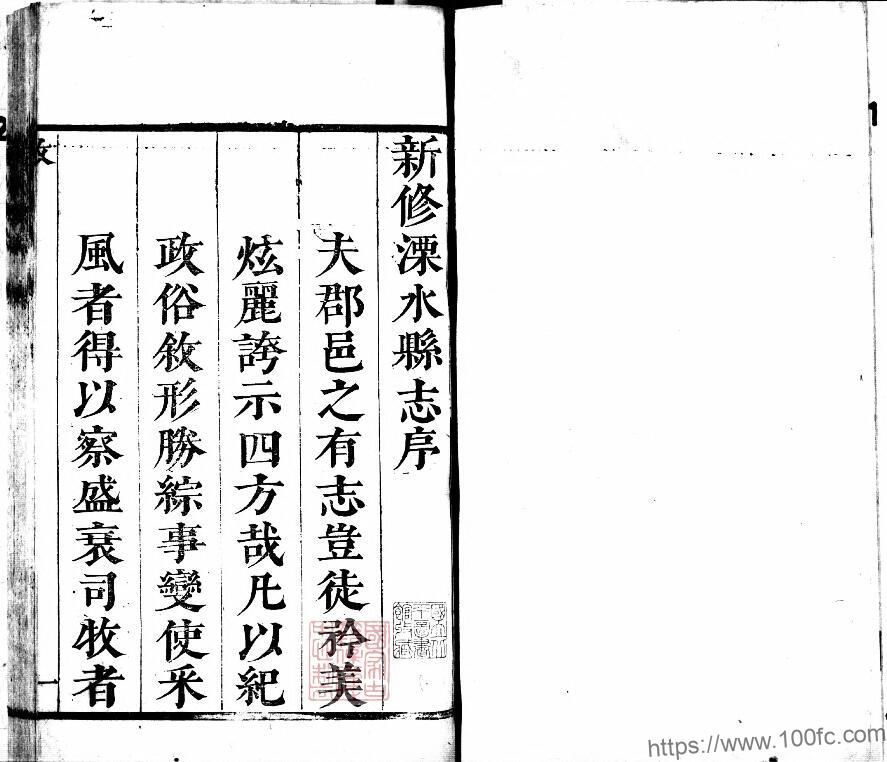 新修溧水縣志序
夫郡邑之有志豈徒矜美
炫麗誇示四方哉凡以紀
政俗敘形勝綜事變使采
風者得以察盛衰司牧者
一
https://www.100fc.com
1
2